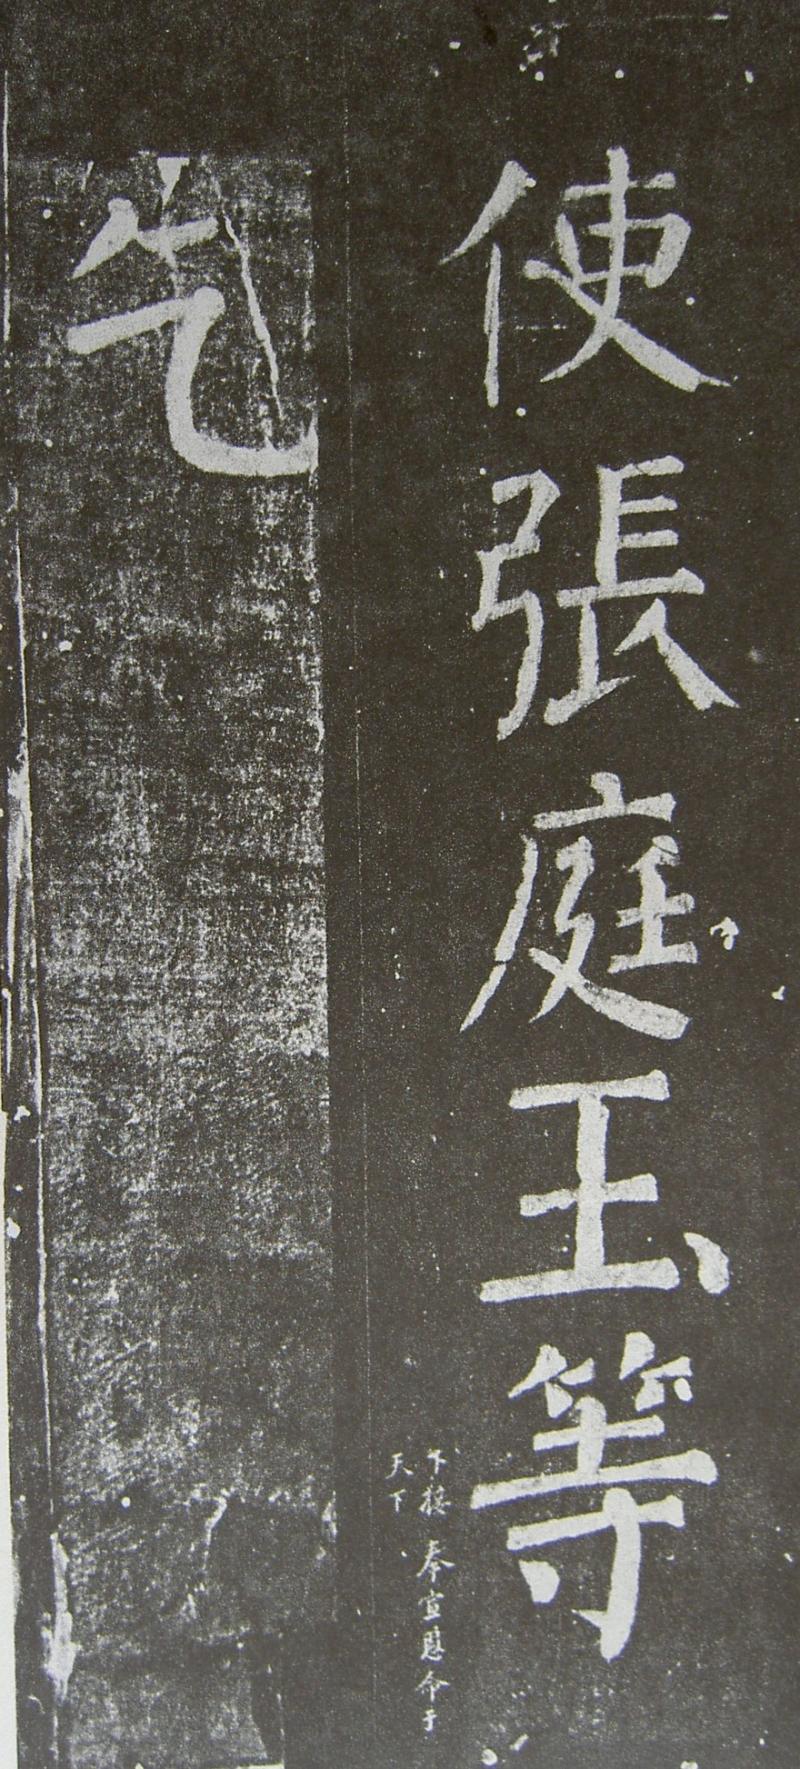 使張庭玉等
下接奉宣恩命于
天下
乞